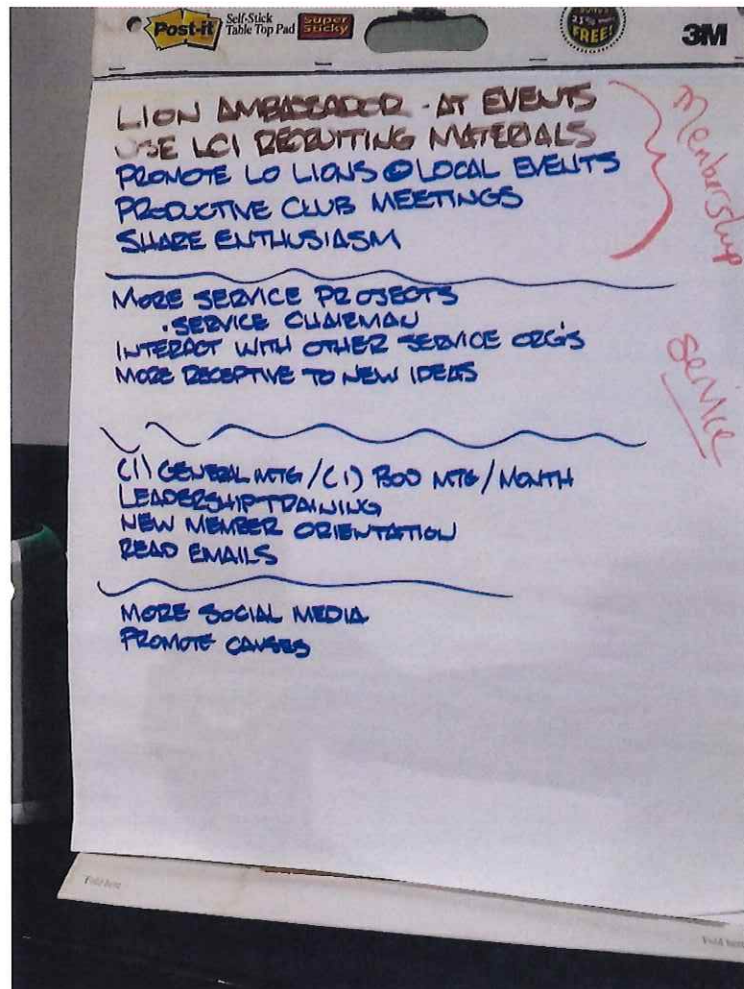 Post-it Self-Stick Super
Table Top Pad Sticky
FREE!
3M
LION AMBASSADOR - AT EVENTS
USE LCI RECRUITING MATERIALS
PROMOTE LO LIONS @ LOCAL EVENTS
PRODUCTIVE CLUB MEETINGS
SHARE ENTHUSIASM
Membership
MORE SERVICE PROJECTS
·SERVICE CHAIRMAN
INTERACT WITH OTHER SERVICE ORG'S
MORE RECEPTIVE TO NEW IDEAS
Service
(1) GENERAL MTG / (1) BOD MTG / MONTH
LEADERSHIP TRAINING
NEW MEMBER ORIENTATION
READ EMAILS
MORE SOCIAL MEDIA
PROMOTE CAUSES
Fold here
Fold here